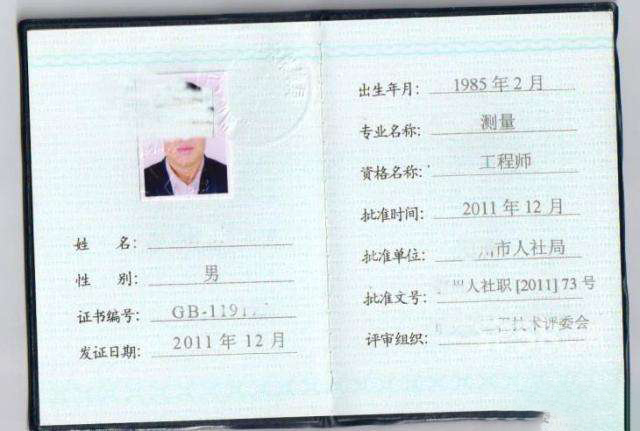 姓 名:
性 别: 男
证书编号: GB-1191
发证日期: 2011 年 12 月
出生年月: 1985 年 2 月
专业名称: 测量
资格名称: 工程师
批准时间: 2011 年 12 月
批准单位: 州市人社局
批准文号: 人社职 [2011] 73 号
评审组织: 技术评委会